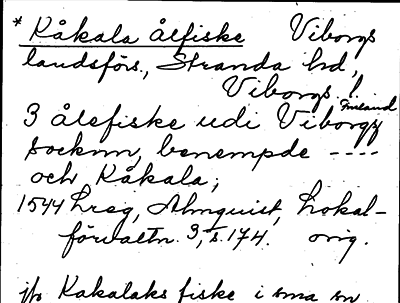 * Kåkala ålfiske Viborgs
landsförs., Stranda hd,
Viborgs l.
Finland
3 ålefiske udi Viborgz
Socknn, benempde ----
och Kåkala;
1544 Lreg, Almquist, Lokal-
förvaltn. 3, s. 174. orig.
jfr Kakalaks fiske i sma sn